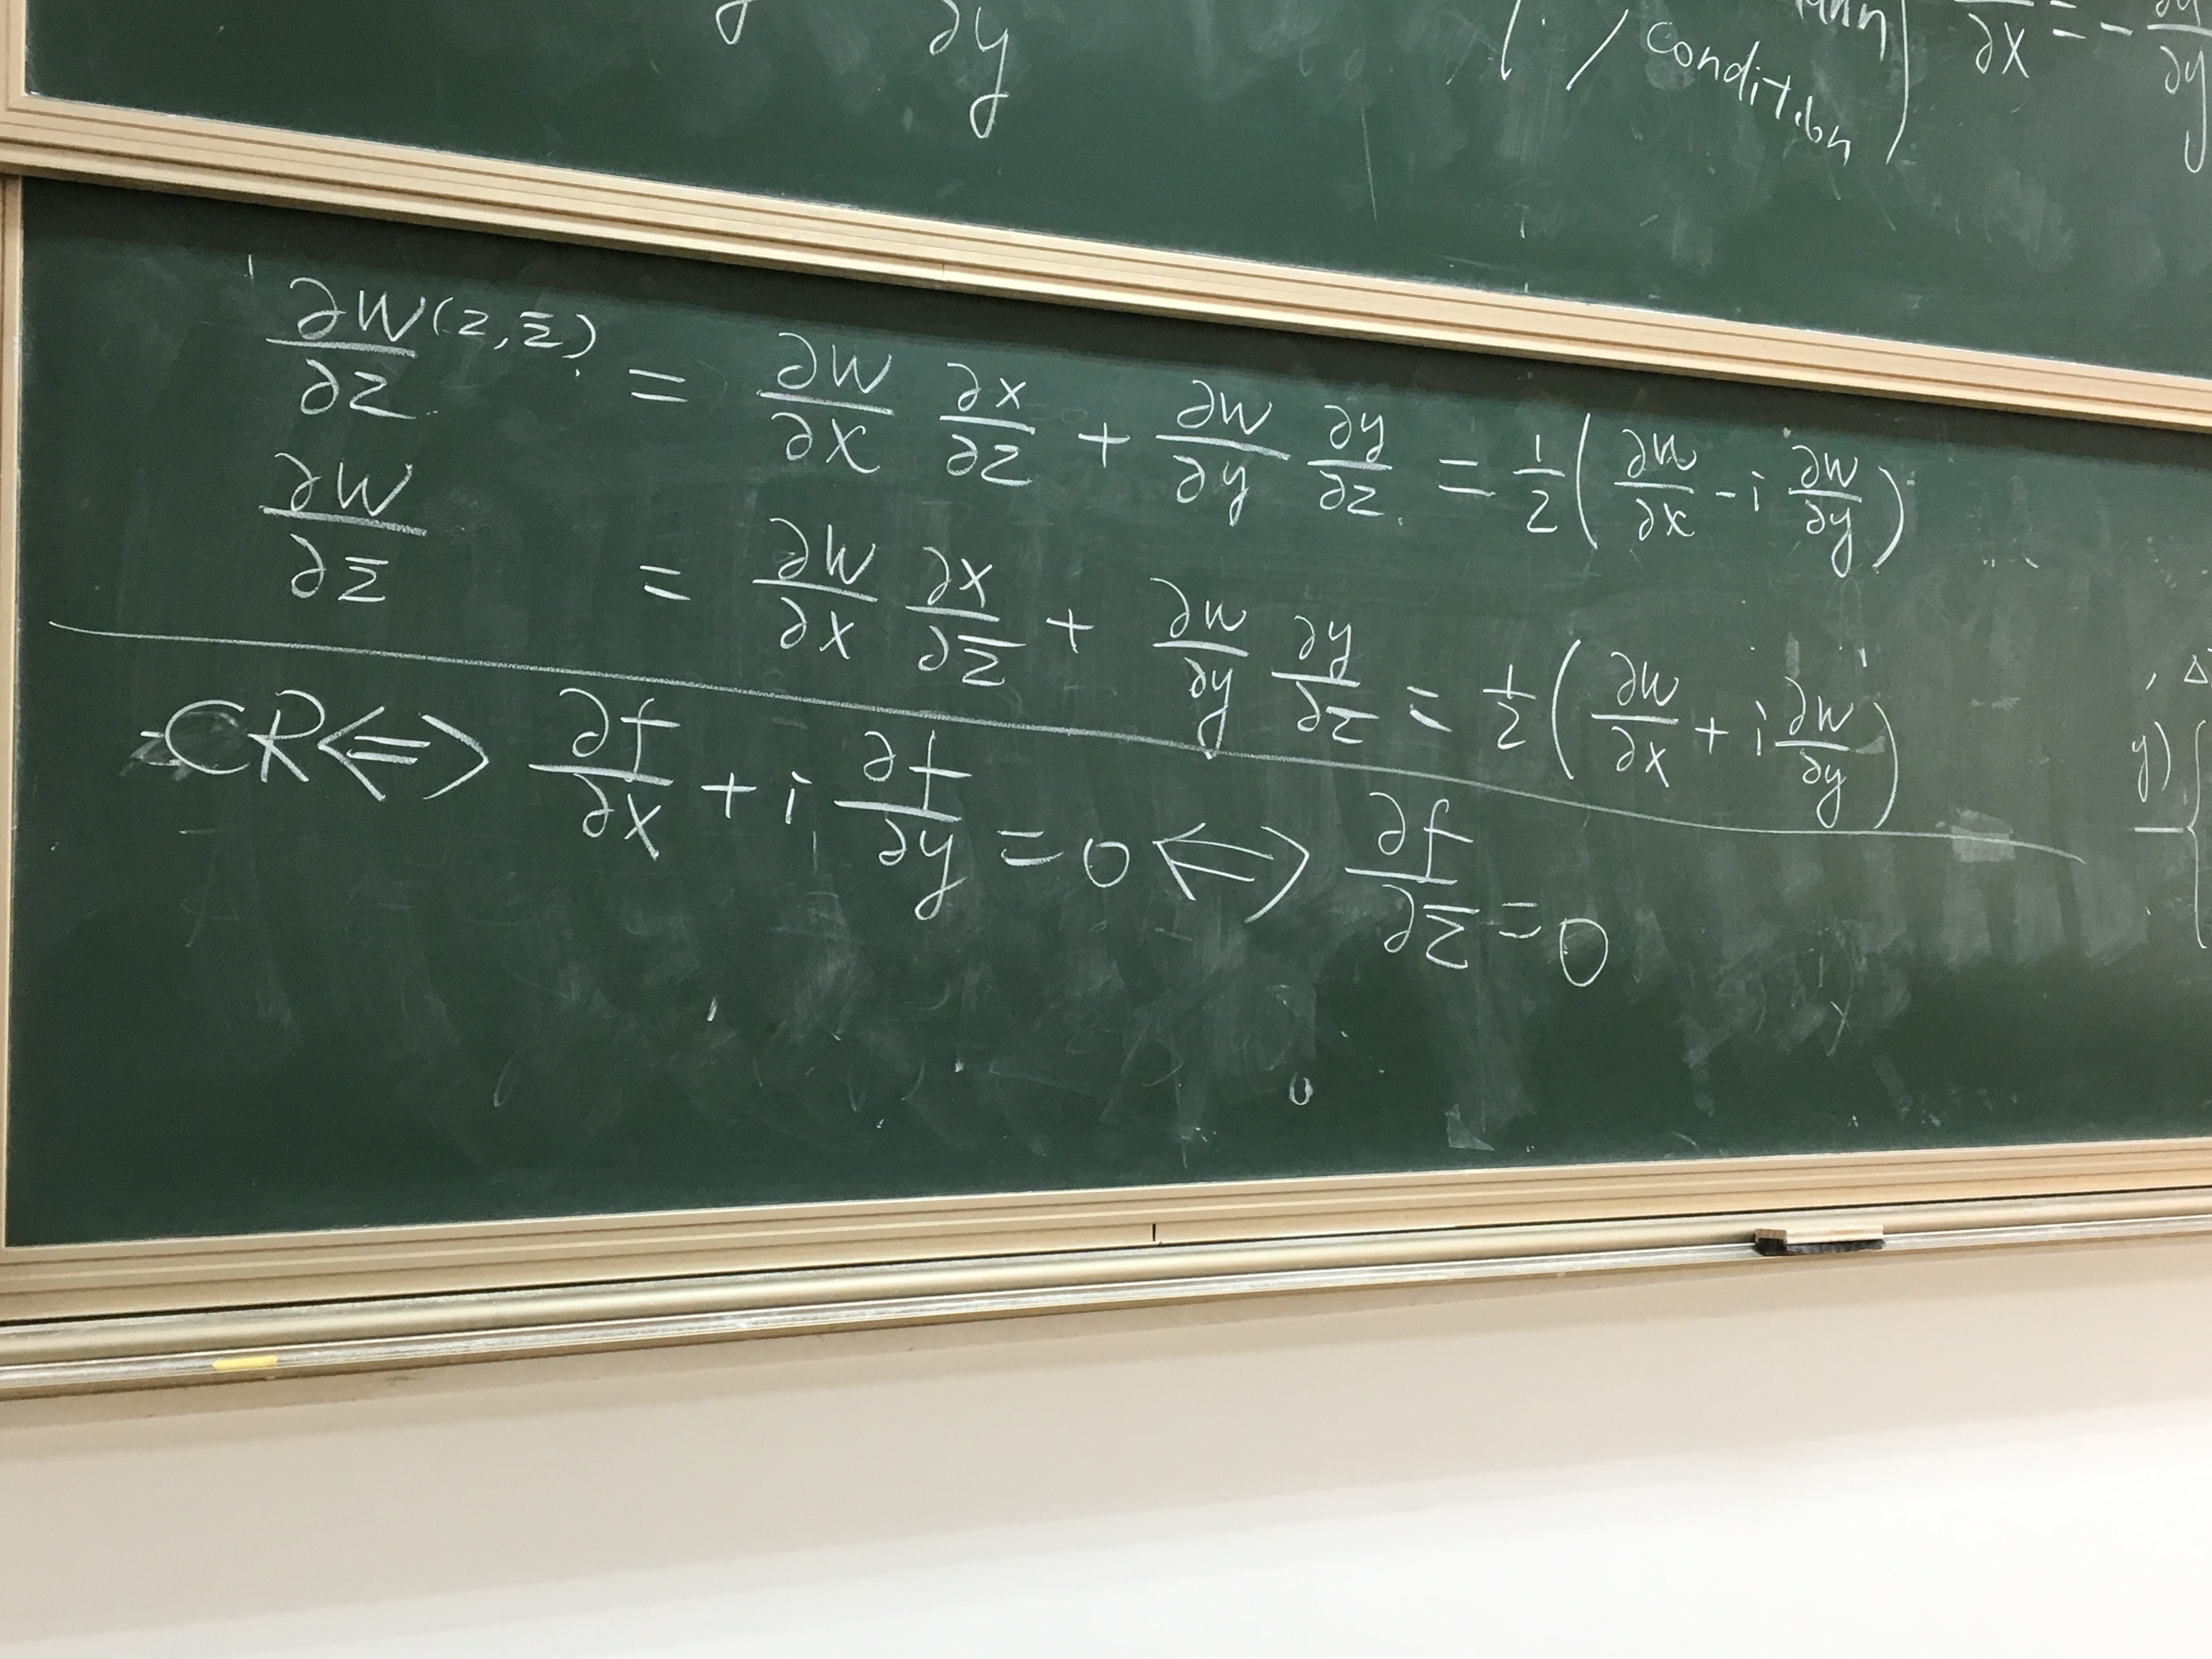 ∂y
condition) ∂x = - ∂y
∂w(z, z̄)/∂z = ∂w/∂x ∂x/∂z + ∂w/∂y ∂y/∂z = 1/2 (∂w/∂x - i ∂w/∂y)
∂w/∂z̄ = ∂w/∂x ∂x/∂z̄ + ∂w/∂y ∂y/∂z̄ = 1/2 (∂w/∂x + i ∂w/∂y)
CR ⇔ ∂f/∂x + i ∂f/∂y = 0 ⇔ ∂f/∂z̄ = 0